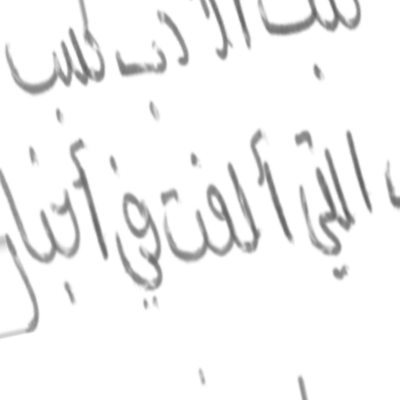 كتب الأدب كتب
التي ألفت في أخبار